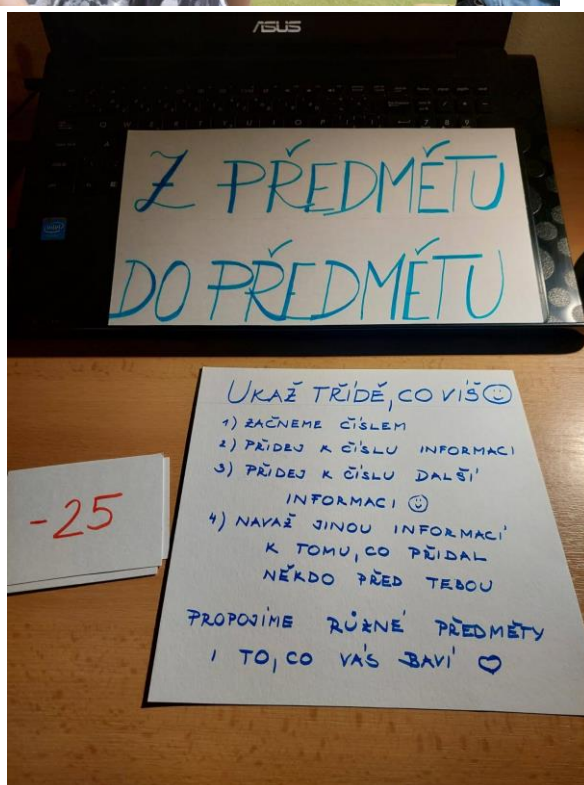 ASUS
Z PŘEDMĚTU
DO PŘEDMĚTU
intel
UKAŽ TŘÍDĚ, CO VÍŠ☺
1) ZAČNEME ČÍSLEM
2) PŘIDEJ K ČÍSLU INFORMACI
3) PŘIDEJ K ČÍSLU DALŠÍ
INFORMACI ☺
4) NAVAŽ JINOU INFORMACÍ
K TOMU, CO PŘIDAL
NĚKDO PŘED TEBOU
-25
PROPOJÍME RŮZNÉ PŘEDMĚTY
I TO, CO VÁS BAVÍ ♡